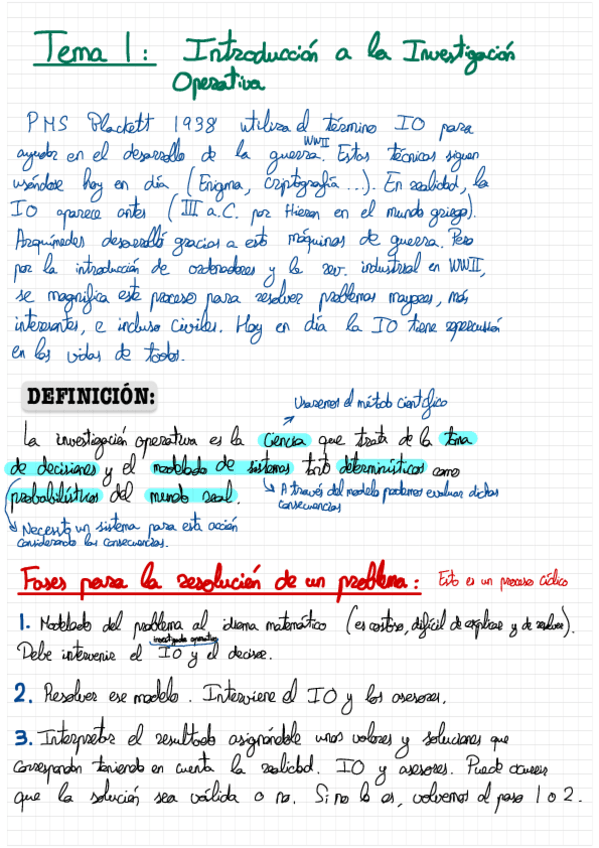 Tema 1: Introducción a la Investigación
Operativa
PMS Blackett 1938 utiliza el término IO para
ayudar en el desarrollo de la guerra. WWII Estas técnicas siguen
usándose hoy en día (Enigma, Criptografía ...). En realidad, la
IO aparece antes (III a.C. por Hieron en el mundo griego).
Arquímedes desarrolló gracias a esto máquinas de guerra. Pero
por la introducción de ordenadores y la rev. industrial en WWII,
se magnifica este proceso para resolver problemas mayores, más
interesantes, e incluso civiles. Hoy en día la IO tiene repercusión
en las vidas de todos.
DEFINICIÓN:
Usaremos el método científico
La investigación operativa es la ciencia que trata de la toma
de decisiones y el modelado de sistemas tanto determinísticos como
probabilísticos del mundo real.
A través del modelo podemos evaluar dichas
consecuencias
Necesito un sistema para esta acción
considerando las consecuencias.
Fases para la resolución de un problema: Esto es un proceso cíclico
1. Modelado del problema al idioma matemático (es costoso, difícil de explicar y de resolver).
investigador operativo
Debe intervenir el IO y el decisor.
2. Resolver ese modelo. Interviene el IO y los asesores.
3. Interpretar el resultado asignándole unos valores y soluciones que
correspondan teniendo en cuenta la realidad. IO y asesores. Puede ocurrir
que la solución sea válida o no. Si no lo es, volvemos al paso 1 o 2.